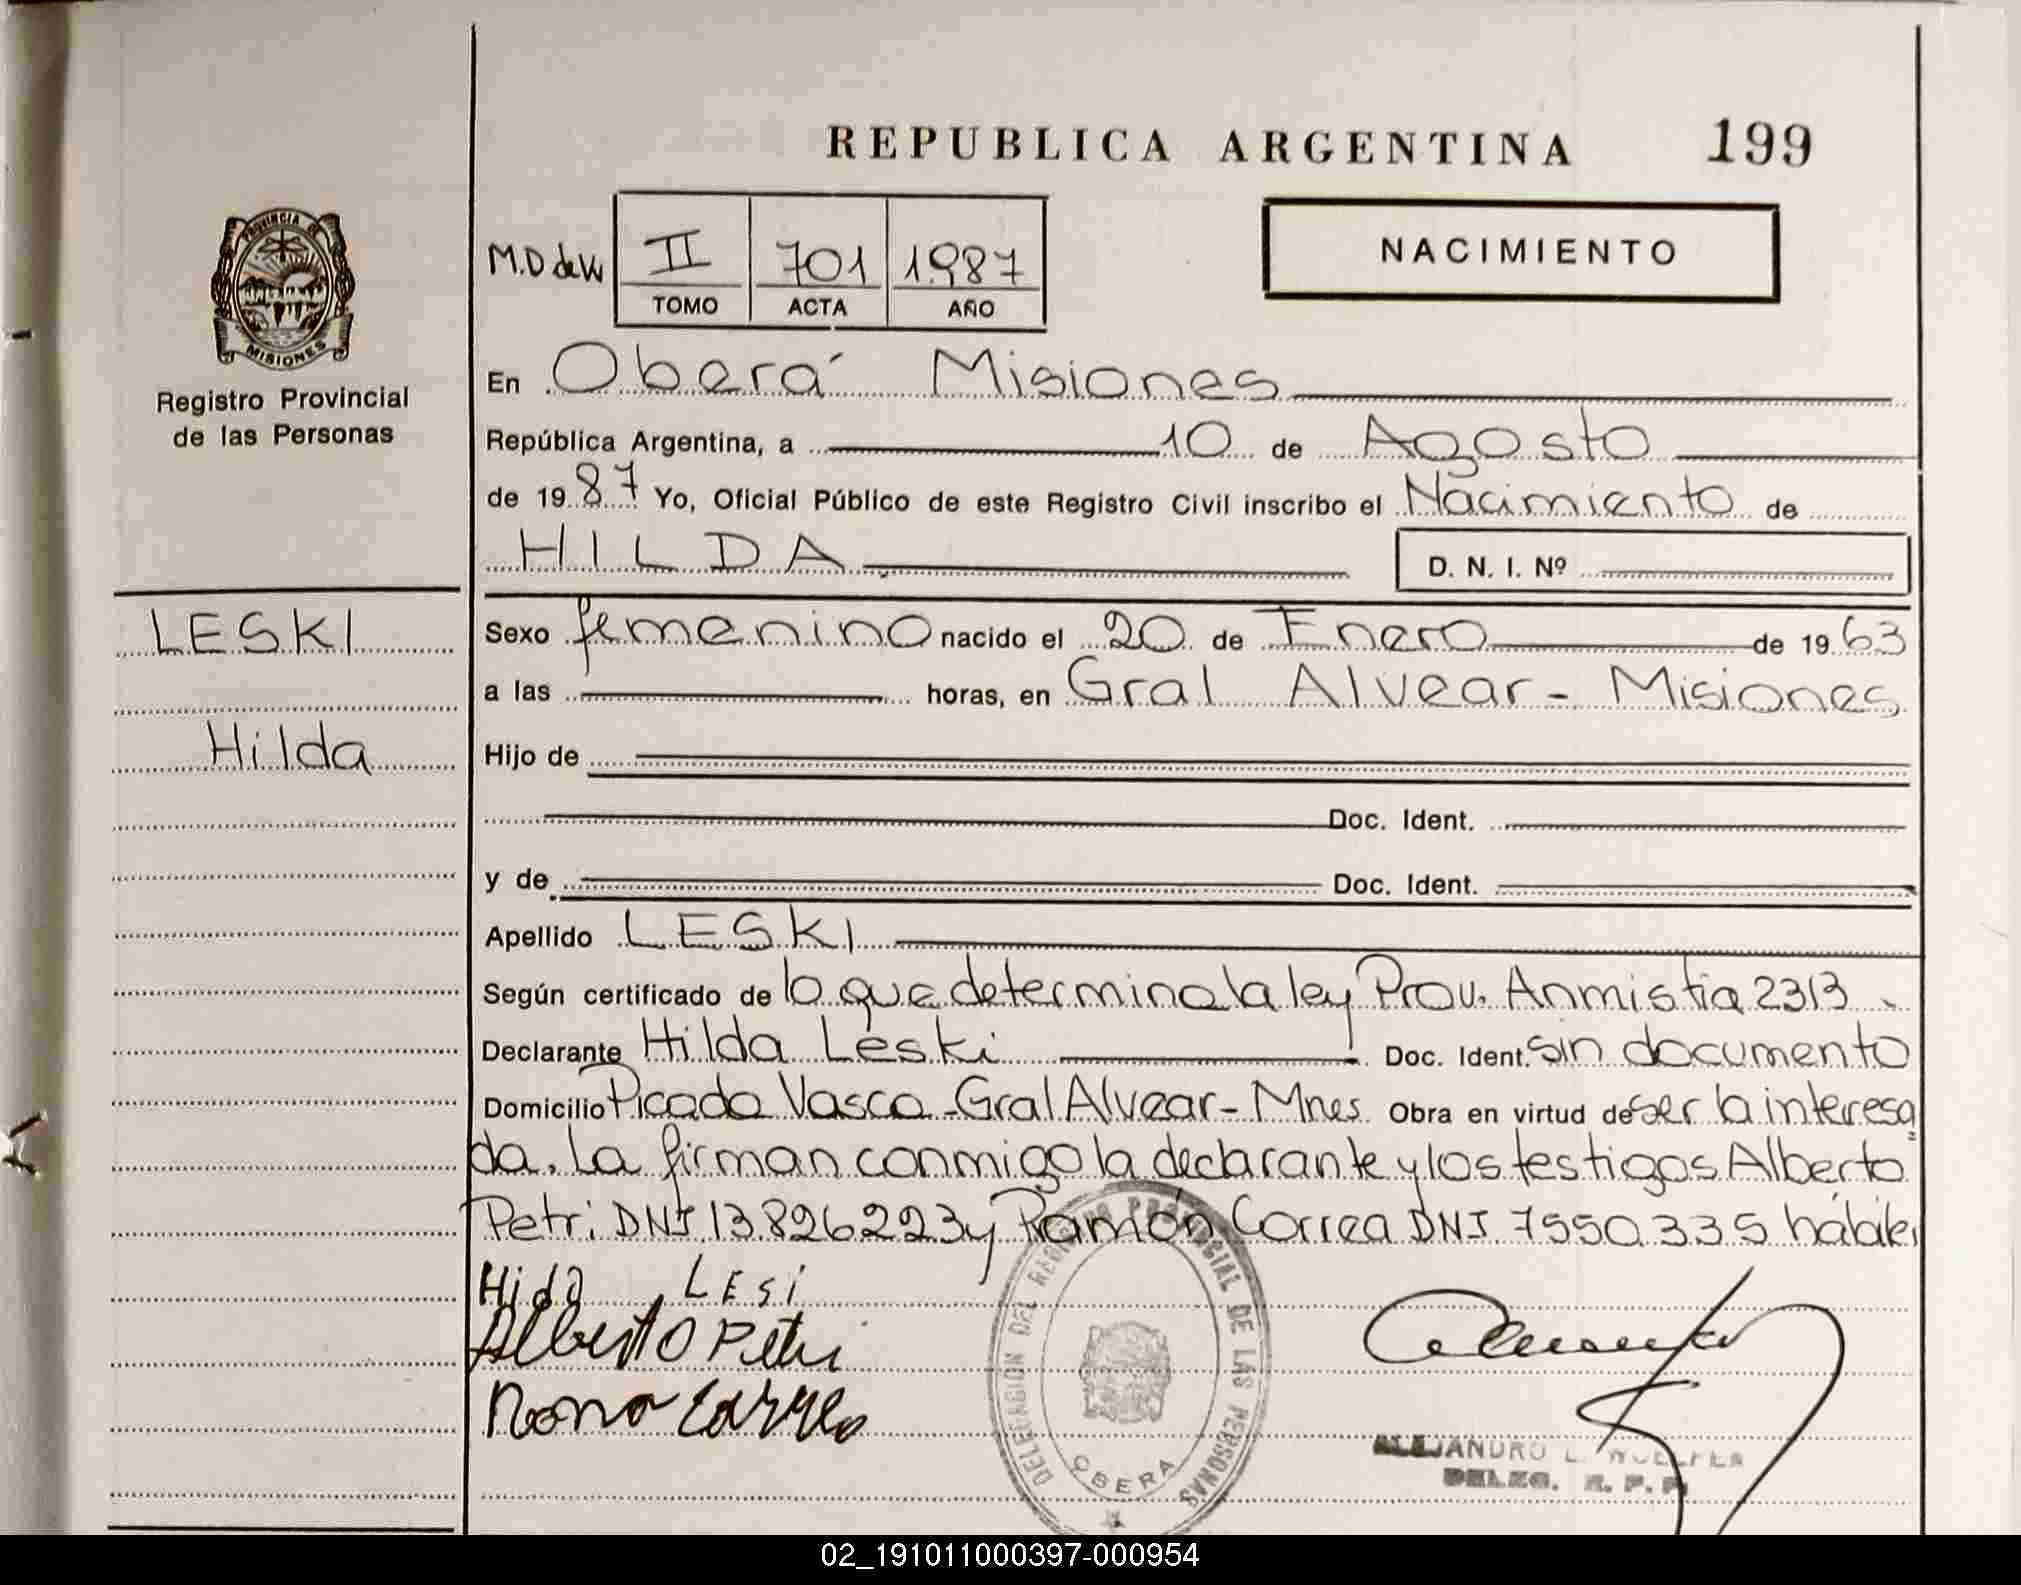 REPUBLICA ARGENTINA 199
PROVINCIA DE
MISIONES
Registro Provincial
de las Personas
LESKI
Hilda
M.D de
II 701 1.987
TOMO ACTA AÑO
NACIMIENTO
En Oberá Misiones
República Argentina, a 10 de Agosto
de 1987 Yo, Oficial Público de este Registro Civil inscribo el Nacimiento de
HILDA D. N. I. Nº
Sexo femenino nacido el 20 de Enero de 1963
a las horas, en Gral Alvear - Misiones
Hijo de
Doc. Ident.
y de Doc. Ident.
Apellido LESKI
Según certificado de lo que determina la ley Prov. Anmistia 2313
Declarante Hilda Leski Doc. Ident. Sin documento
Domicilio Picada Vasca - Gral Alvear - Mnes. Obra en virtud de ser la interesa
da. La firman conmigo la declarante y los testigos Alberto
Petri DNI 13.826.223 y Ramón Correa DNI 7.550.335 hábiles
Hida LESi
Alberto Petri
DELEGACION DEL REGISTRO PROVINCIAL DE LAS PERSONAS
OBERA
ALEJANDRO L.
DELEG. R. P. P.
02_191011000397-000954